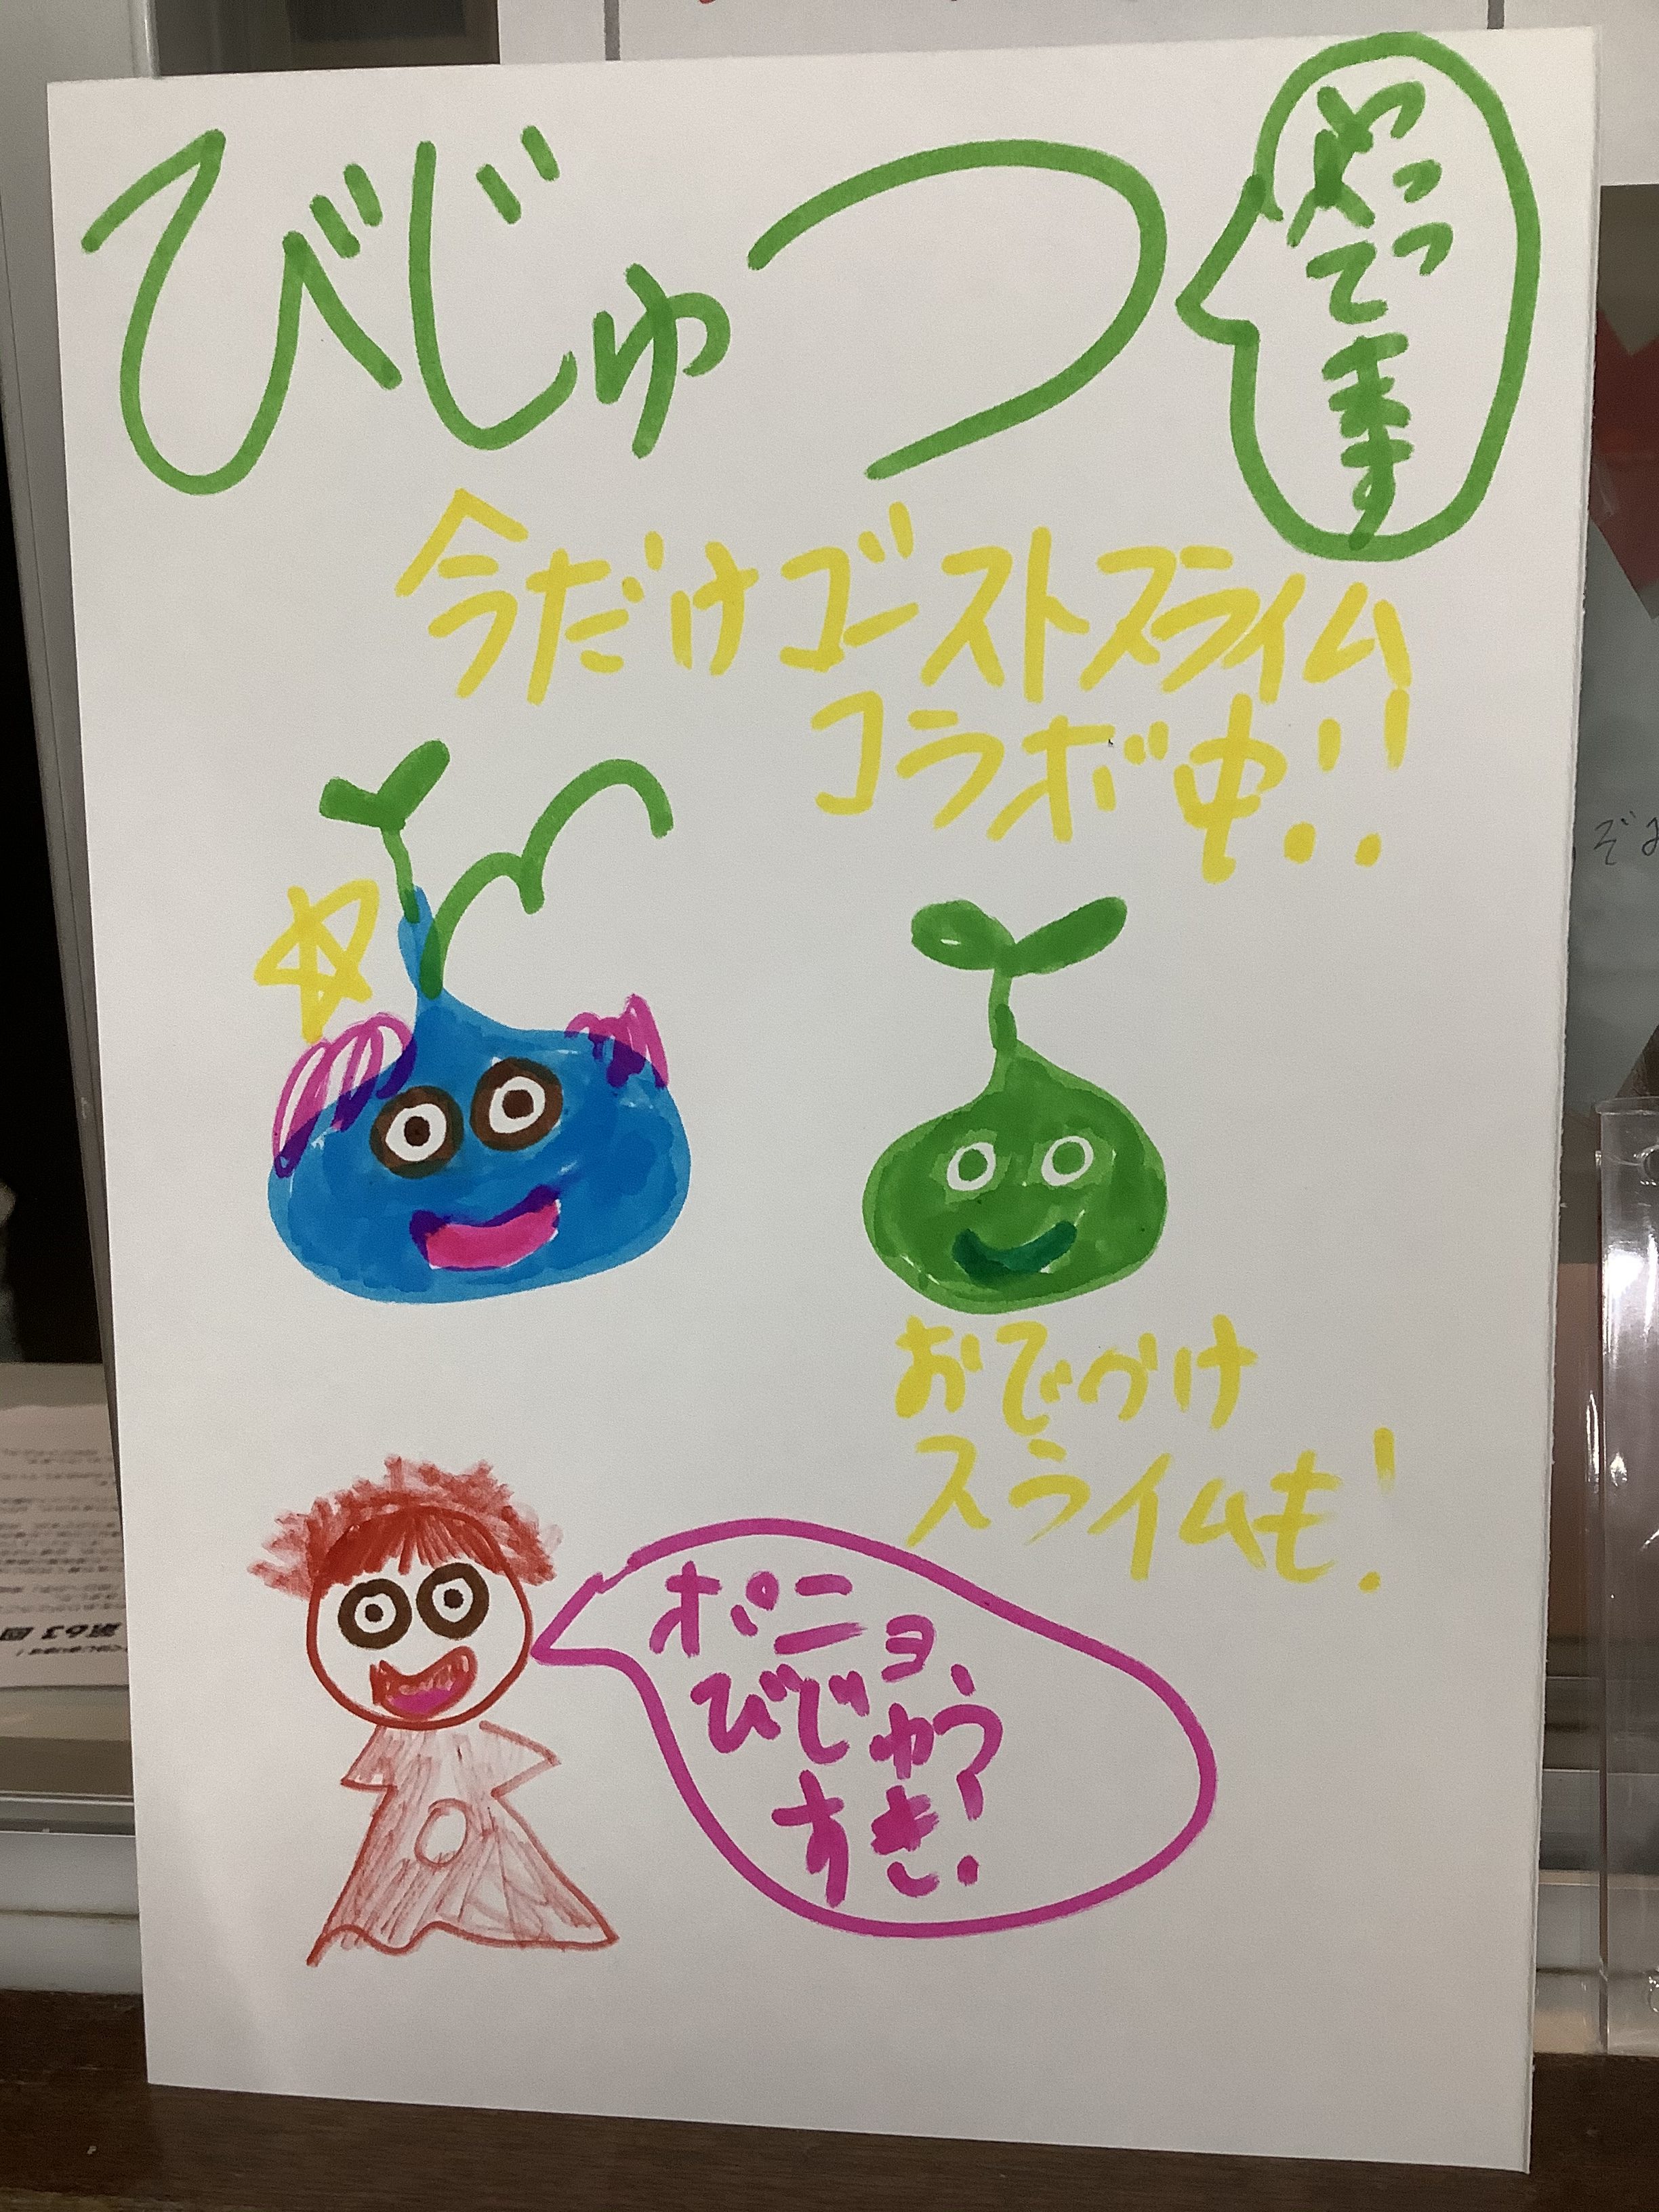 びじゅつ
やってます
今だけゴーストスライム
コラボ中!!
おでかけ
スライムも!
ポニョ、
びじゅつ
すき!
第63回